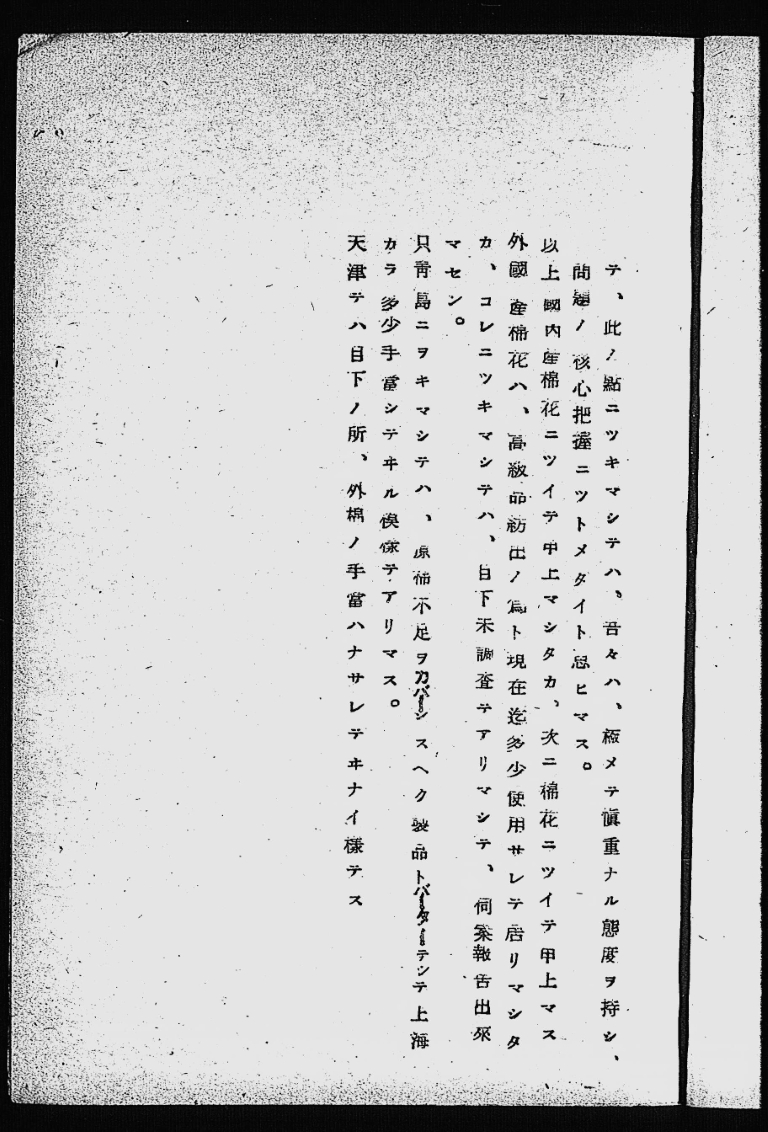 テ、此ノ點ニツキマシテハ、吾々ハ、極メテ愼重ナル態度ヲ持シ、
問題ノ核心把握ニツトメタイト思ヒマス。
以上國內產棉花ニツイテ申上マシタカ、次ニ棉花ニツイテ申上マス
外國產棉花ハ、高級品紡出ノ爲ト現在迄多少使用サレテ居リマシタ
カ、コレニツキマシテハ、目下未調査テアリマシテ、何案報告出來
マセン。
只靑島ニヲキマシテハ、原棉不足ヲカバーシスヘク製品トバーターテシテ上海
カラ多少手當シテヰル模樣テアリマス。
天津テハ目下ノ所、外棉ノ手當ハナサレテヰナイ樣テス